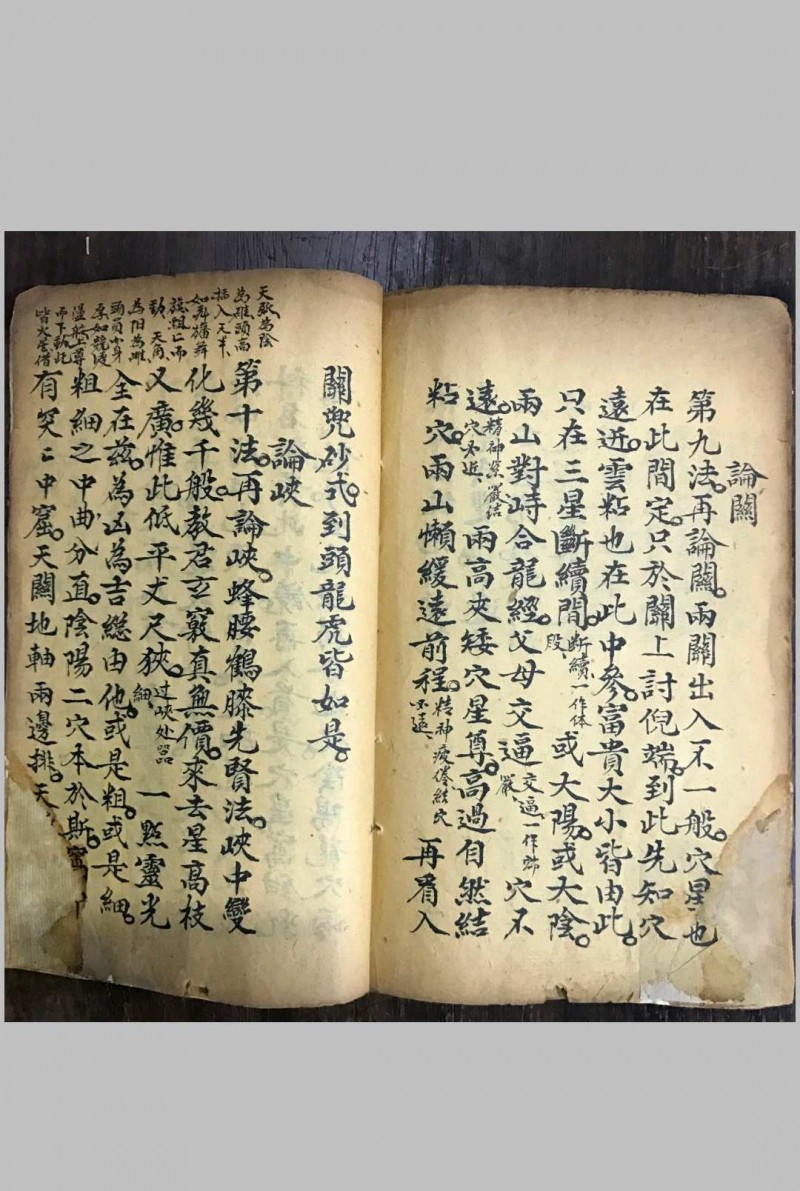 論關
第九法。再論關。兩關出入不一般。穴星也
在此間定。只於關上討倪端。到此先知穴
遠近。雲粘也在此中參。富貴大小皆由此。
只在三星斷續間。斷續一作体段、或大陽。或大陰。
兩山對峙合龍經。父母交逼交逼一作嚴穴不
遠。精神緊嚴結穴不近、兩高夾矮穴星尊。高過自然結
粘穴。兩山懶緩遠前程。精神疲倦結穴不遠、再看入
關兜砂式。到頭龍虎皆如是。
論峽
第十法。再論峽。蜂腰鶴膝先賢法。峽中變
化幾千般。教君玄竅真無價。來去星高枝
又廣。惟此低平丈尺狹。过峡处細一點靈光
全在茲。為凶為吉總由他。或是粗。或是細。
粗細之中曲分直。陰陽二穴本於斯。
有突中窟。天關地軸兩邊排。天
天張為陰
為雄頭高
插入天半、
如舞旛
天角、
為阳為雌
頭員小身